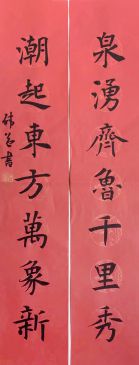 泉湧齊魯千里秀
潮起東方萬象新